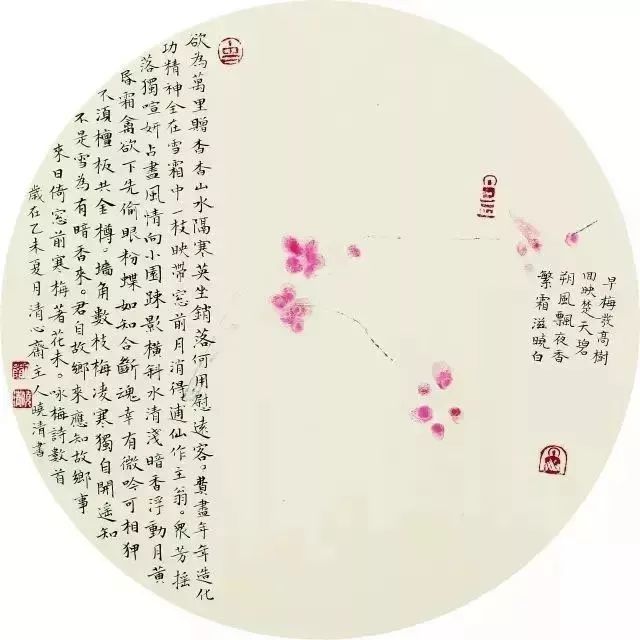 早梅發高樹
囬映楚天碧
朔風飄夜香
繁霜滋曉白
欲為萬里贈杳杳山水隔寒英坐銷落何用慰遠客。費盡年年造化
功精神全在雪霜中一枝映帶窓前月消得逋仙作主翁。眾芳搖
落獨喧妍占盡風情向小園疎影橫斜水清淺暗香浮動月黃
昏霜禽欲下先偷眼粉蝶如知合斷魂幸有微吟可相狎
不須檀板共金樽。墻角數枝梅凌寒獨自開遥知
不是雪為有暗香來。君自故鄉來應知故鄉事
來日倚窓前寒梅著花未。咏梅詩數首
歲在乙未夏月清心齋主人曉清書